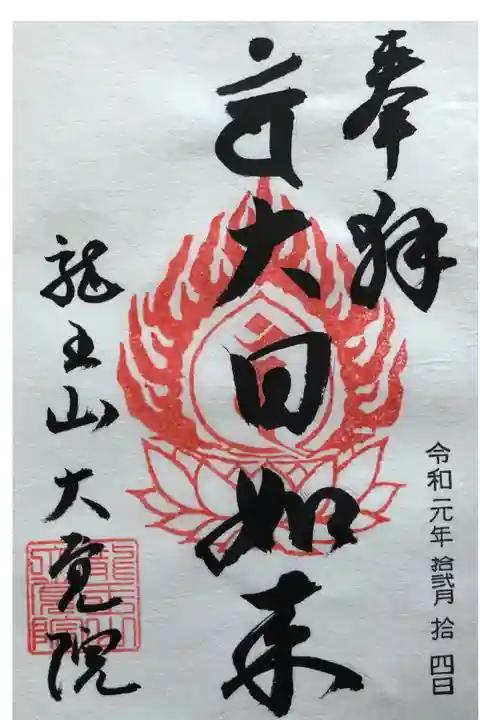 奉拝
大日如来
龍王山大覚院
令和元年 拾弐月 拾 四日